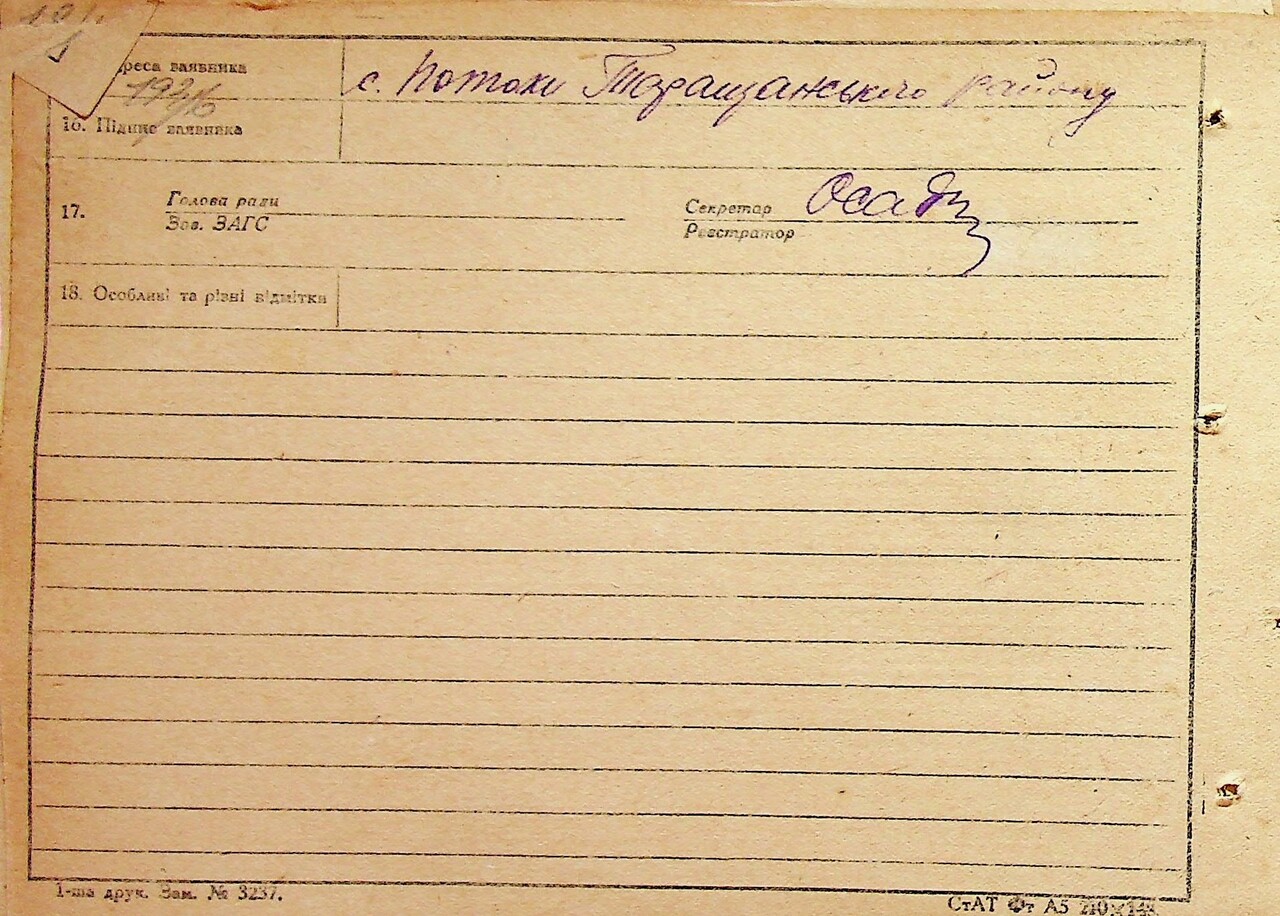 реса заявника с. Потоки Таращанського району
16. Підпис заявника
17. Голова ради Секретар Осад
Зав. ЗАГС Реєстратор
18. Особливі та різні відмітки
1-ша друк. Зам. № 3237. СтАТ Фт А5 210×148